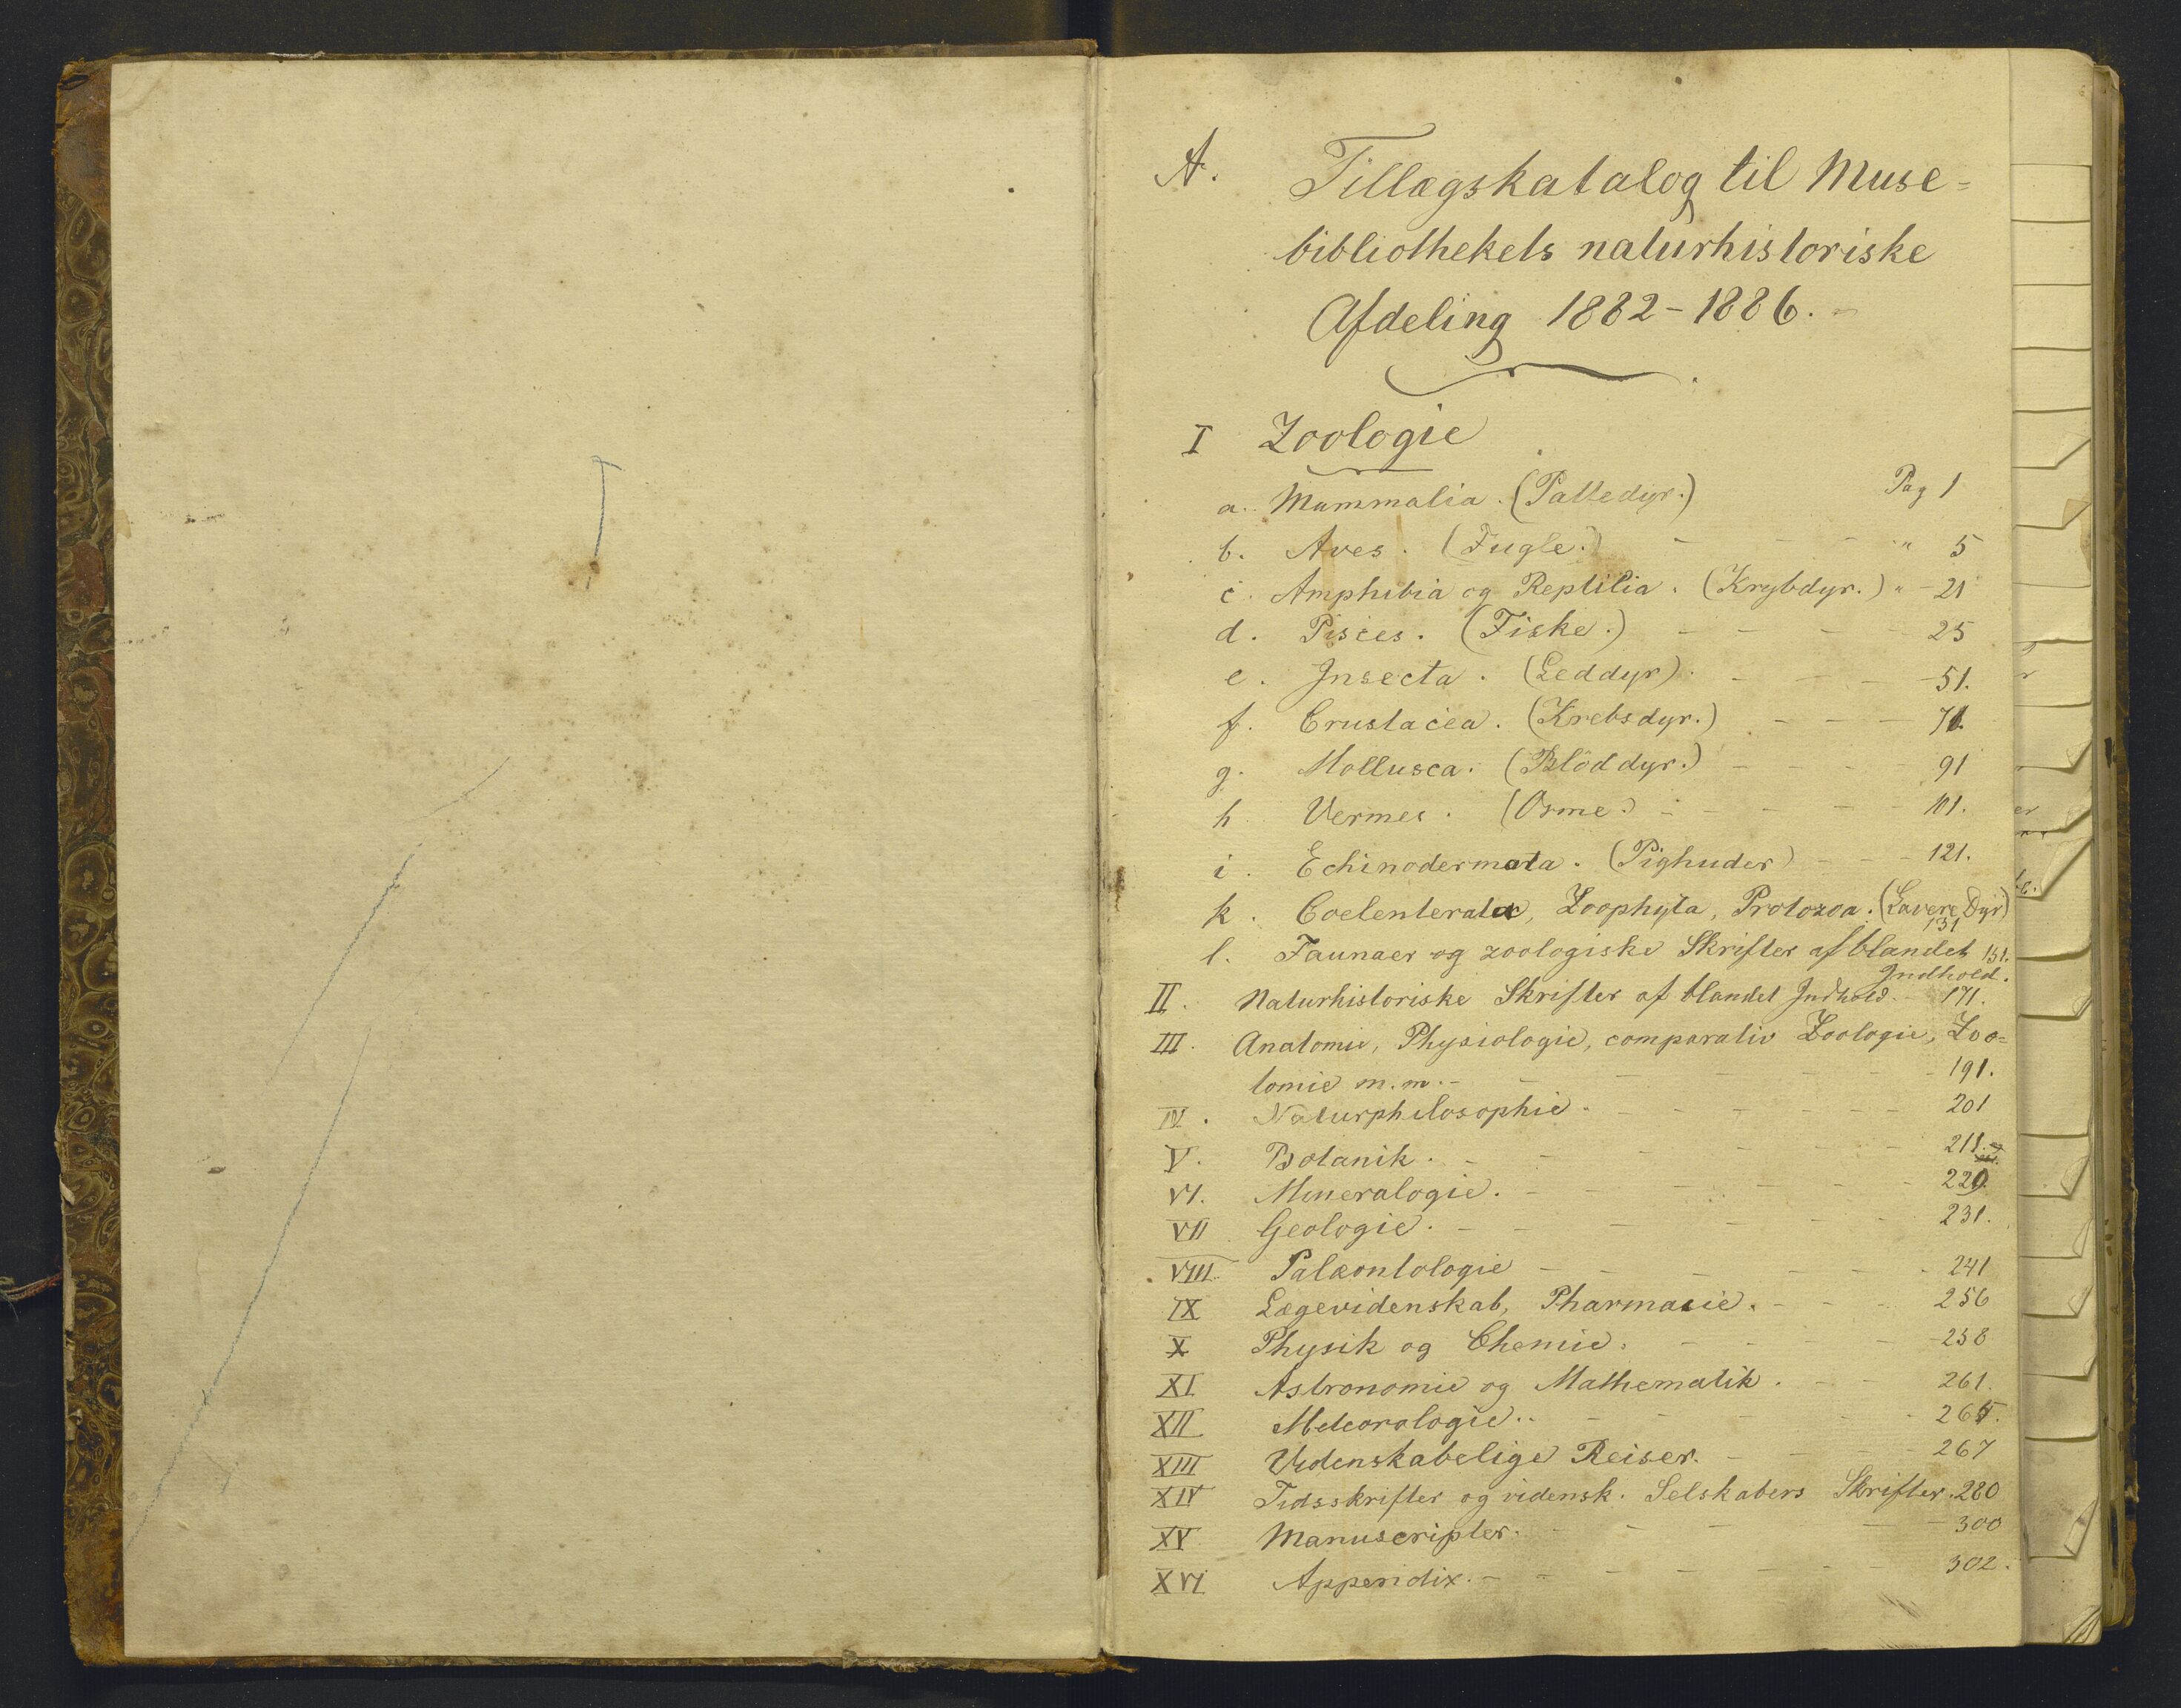 A. Tillægskatalog til Muse=
bibliothekets naturhistoriske
Afdeling 1882-1886.
I Zoologie
a. Mammalia. (Pattedyr.) Pag 1
b. Aves. (Fugle.) - - - " 5
c. Amphibia og Reptilia. (Krybdyr.) " - 21
d. Pisces. (Fiske.) - - - - 25
e. Insecta. (Leddyr). - - - - 51.
f. Crustacea. (Krebsdyr.) - - - 71.
g. Mollusca. (Blöddyr.) - - - - 91
h. Vermes. (Orme.) - - - - - 101.
i. Echinodermata. (Pighuder) - - - 121.
k. Coelenterata, Zoophyta, Protozoa. (Lavere Dyr)
131
l. Faunaer og zoologiske Skrifter af blandet 151.
Indhold.
II. Naturhistoriske Skrifter af blandet Indhold. - 171.
III. Anatomie, Physiologie, comparativ Zoologie, Zoo=
tomie m.m. - - - - - - 191.
IV. Naturphilosophie. - - - - - 201
V. Botanik. - - - - - - 211.
VI. Mineralogie. - - - - - - 229.
VII Geologie. - - - - - - 231.
VIII Palæontologie - - - - - - 241
IX Lægevidenskab, Pharmacie. - - - 256
X Physik og Chemie. - - - - 258
XI Astronomie og Mathematik. - - 261.
XII Meteorologie.. - - - - - 265.
XIII Videnskabelige Reiser. - - - - 267
XIV Tidsskrifter og vidensk. Selskabers Skrifter. 280
XV Manuscripter. - - - - - 300
XVI Appendix. - - - - - - 302.